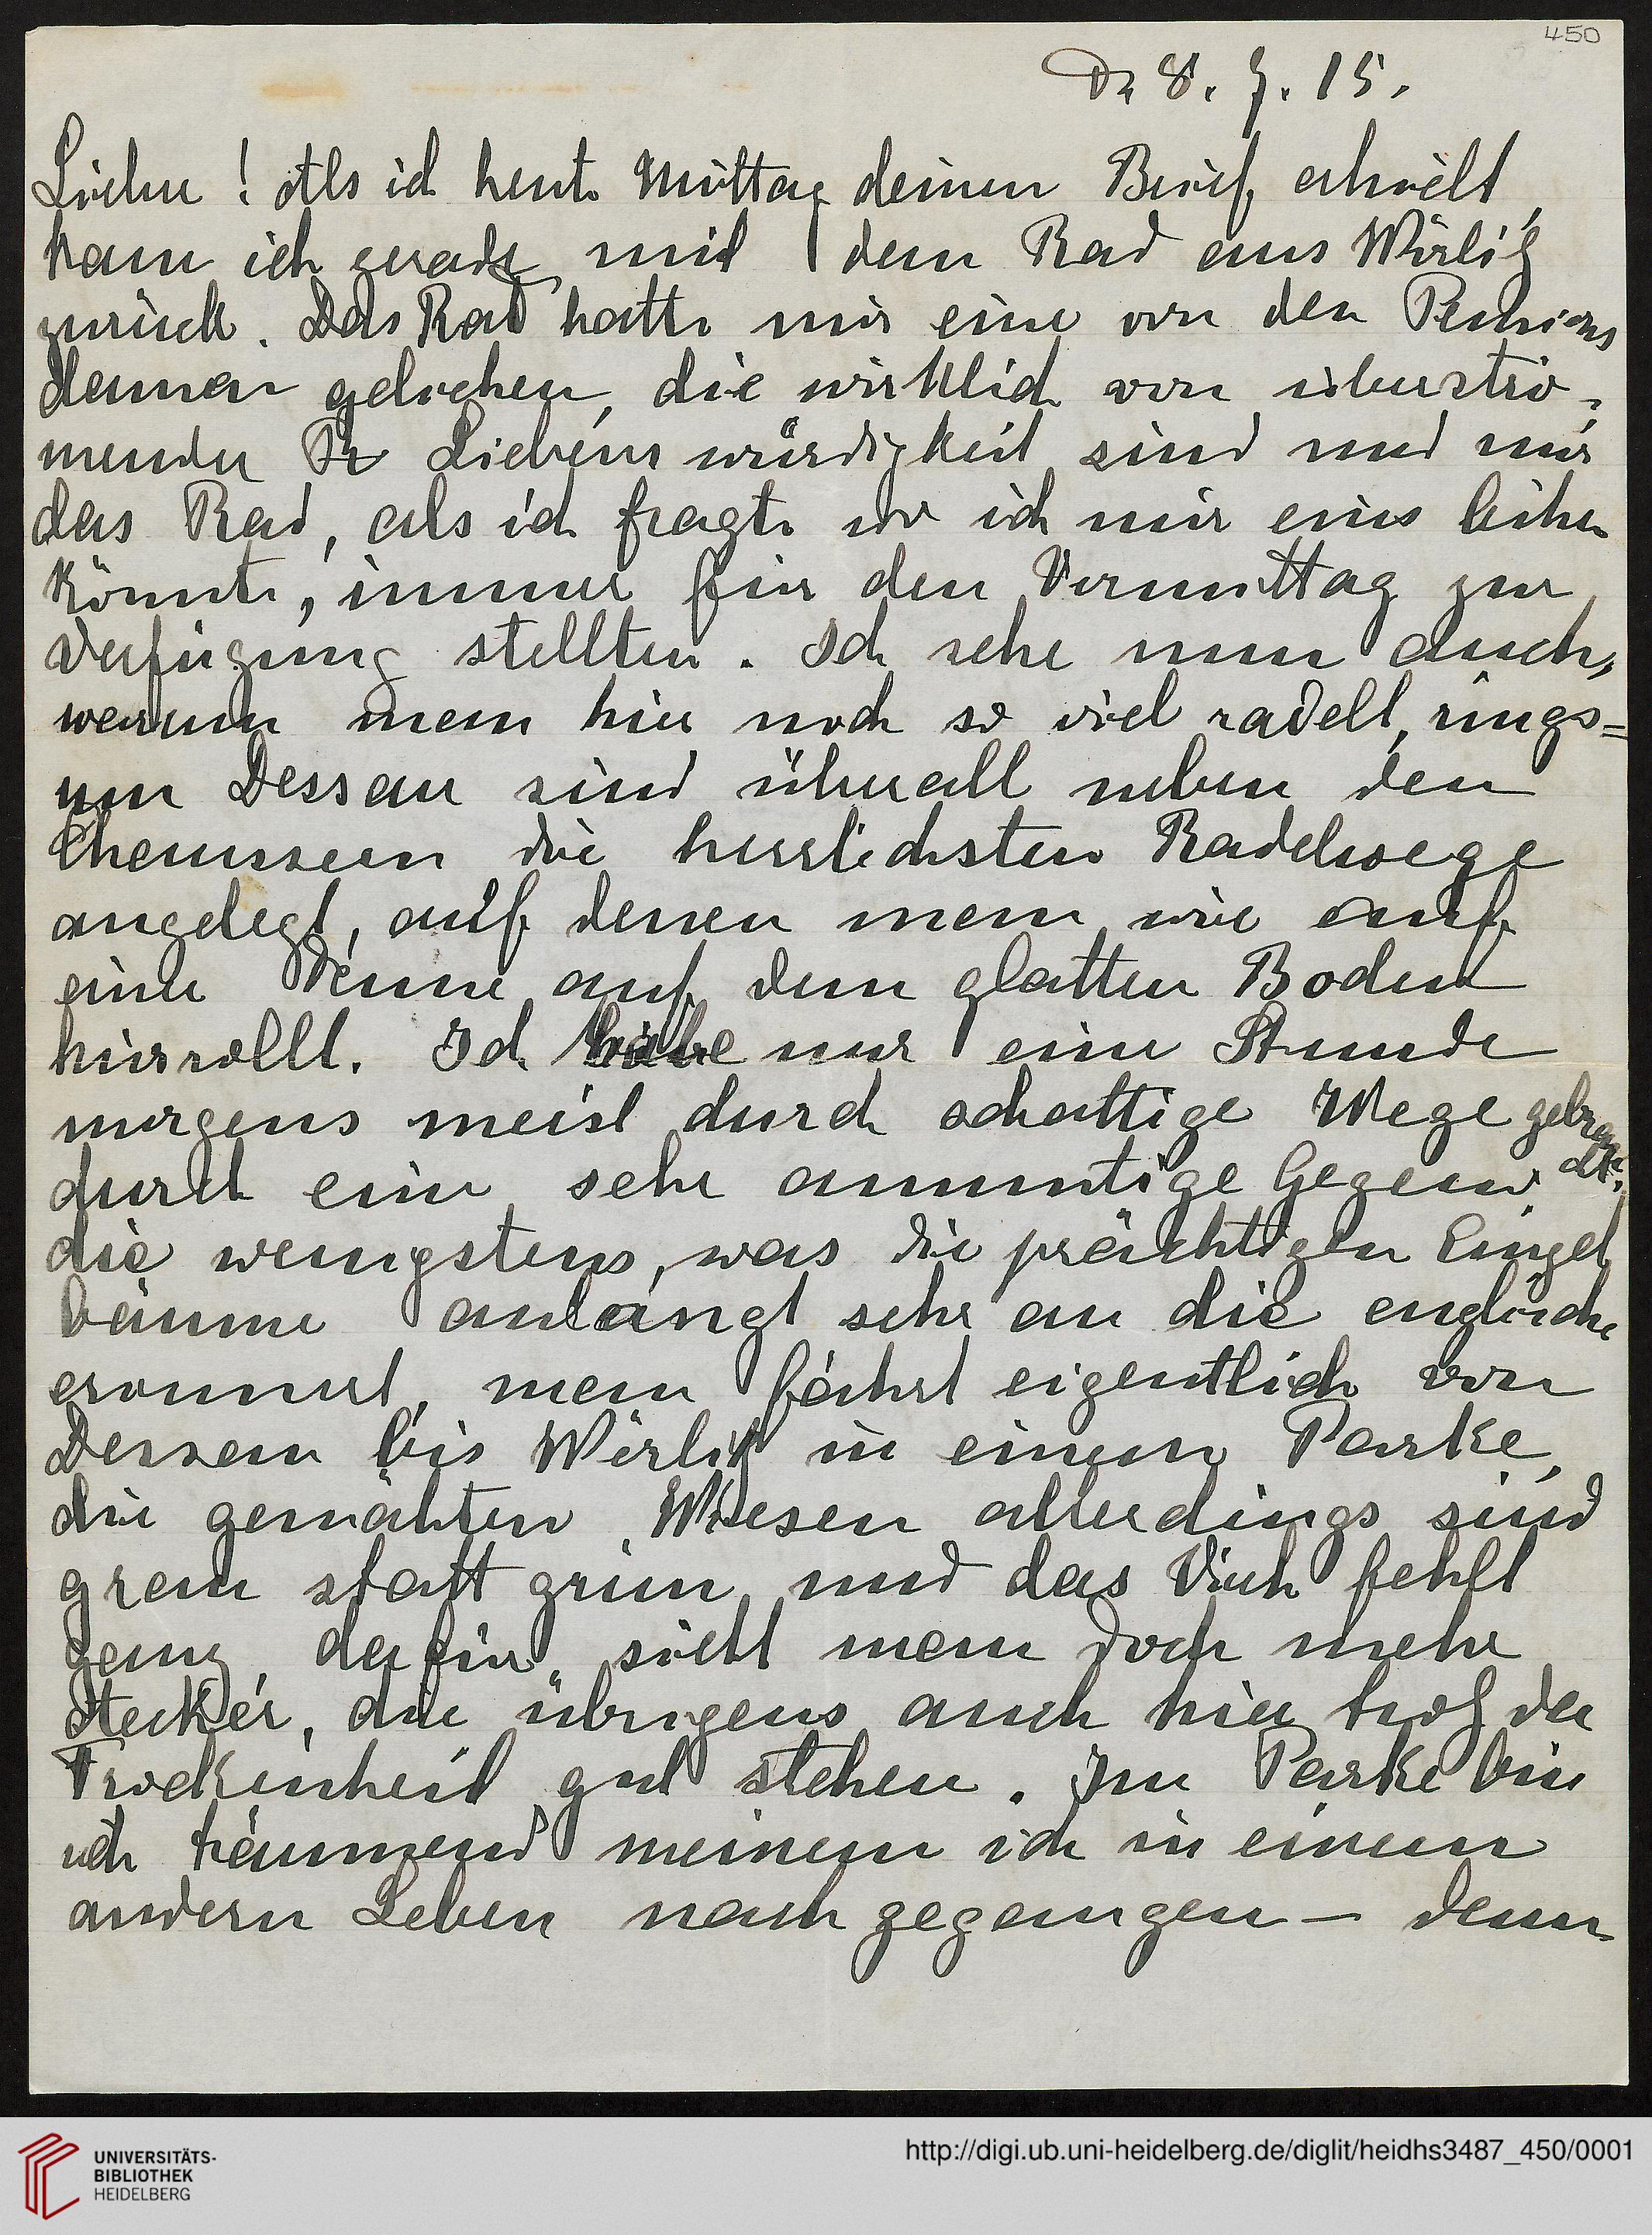 450
D, 8. 7. 15.
Liebe! Als ich heute Mittag deinen Brief erhielt
kam ich gerade mit dem Rad aus Wörlitz
zurück. Das Rad hatte mir eine von den Pensions
damen geliehen, die wirklich von überströ-
mender Liebenswürdigkeit sind und mir
das Rad, als ich fragte wo ich mir eins leihen
könnte, immer für den Vormittag zur
Verfügung stellten. Ich sehe nun auch,
warum man hier noch so viel radelt, rings=
um Dessau sind überall neben den
Chausseen die herrlichsten Radelwege
angelegt, auf denen man wie auf
einer Tenne auf dem glatten Boden
hinrollt. Ich habe nur eine Stunde
morgens meist durch schattige Wege gebrau
cht,
durch eine sehr anmutige Gegend
die wenigstens, was die prächtigen Einzel
bäume anlangt sehr an die englische
erinnert, man fährt eigentlich von
Dessau bis Wörlitz in einem Parke,
die gemähten Wiesen allerdings sind
grau statt grün und das Vieh fehlt
ganz, dafür sieht man doch mehr
Äcker, die übrigens auch hier trotz der
Trockenheit gut stehen. Im Parke bin
ich träumend meinem ich in einem
andern Leben nachgegangen – denn
UNIVERSITÄTS-
BIBLIOTHEK
HEIDELBERG
http://digi.ub.uni-heidelberg.de/diglit/heidhs3487_450/0001